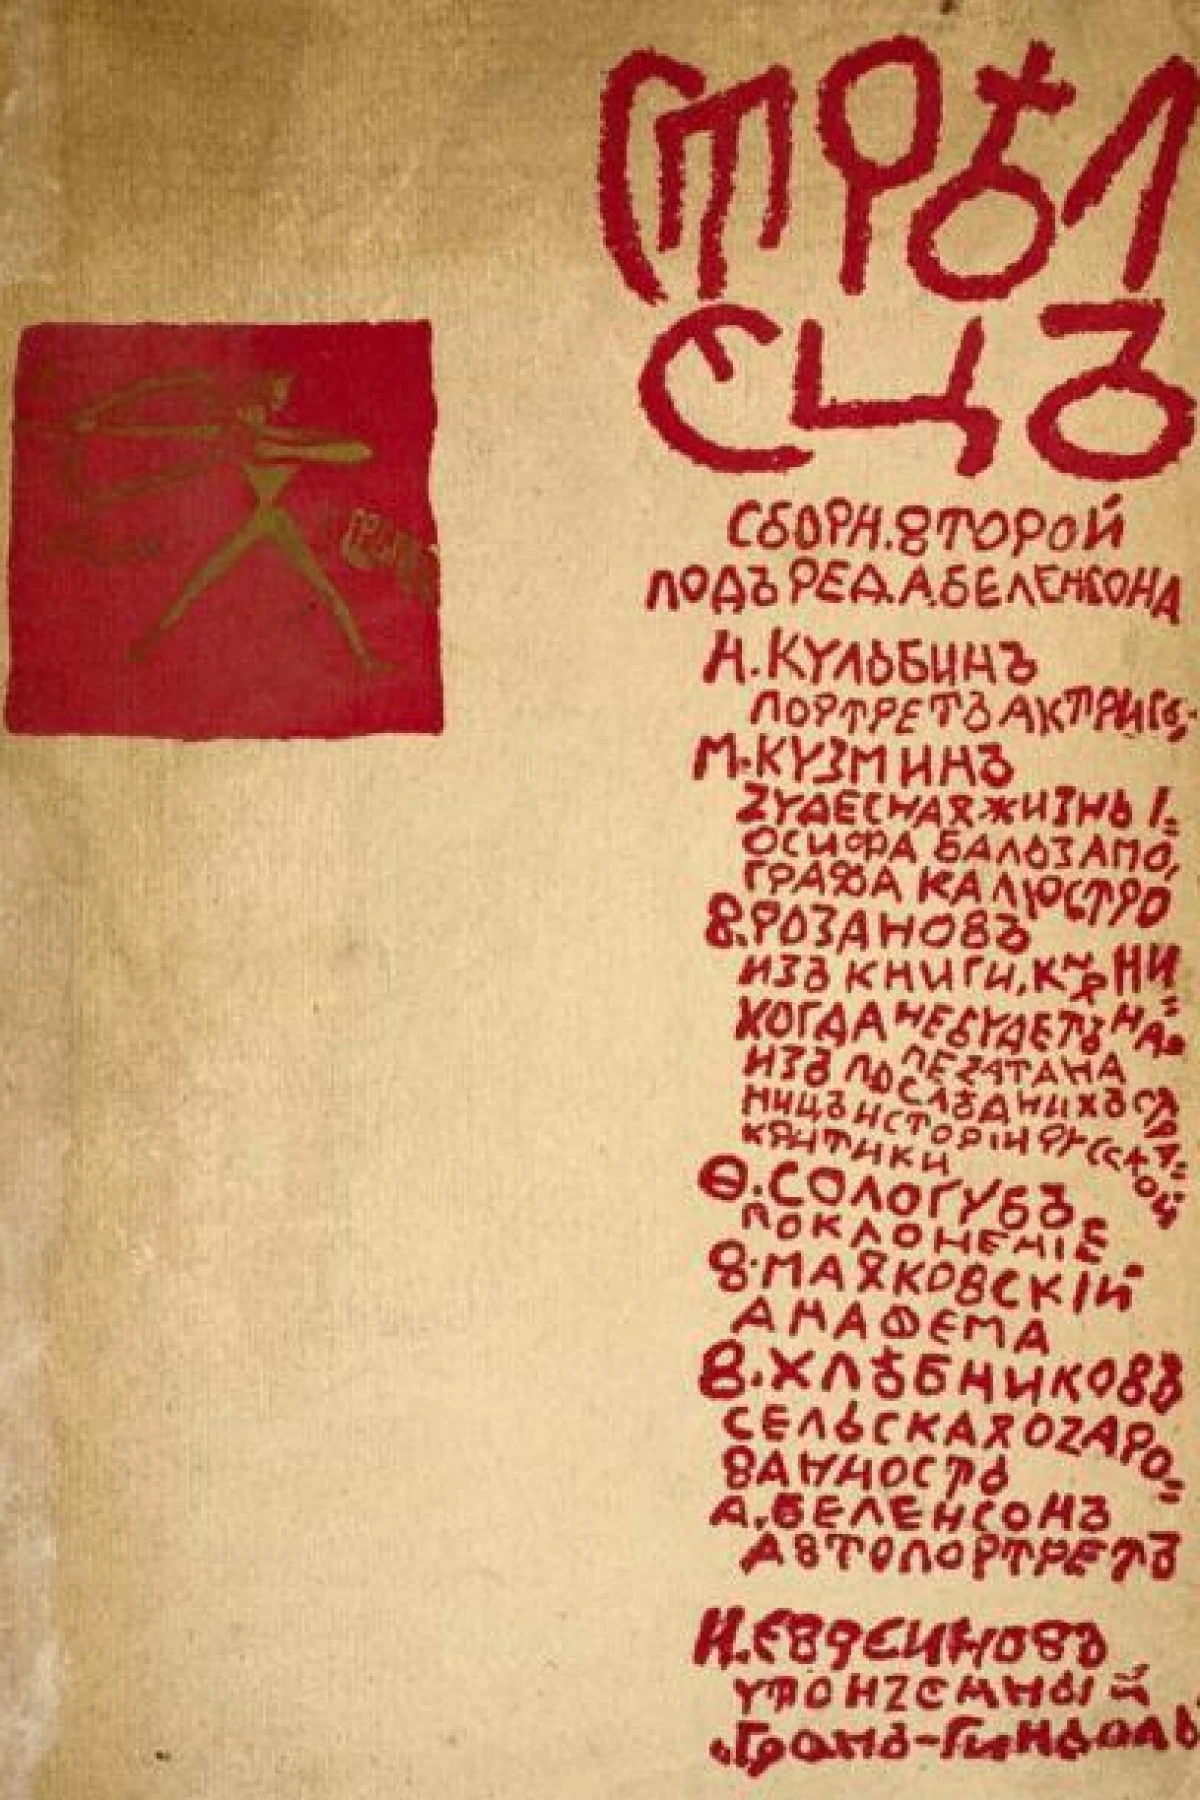 СТРѢЛ
ЕЦЪ
СБОРН. ВТОРОЙ
ПОДЪ РЕД. А. БЕЛЕНСОНА
Н. КУЛЬБИНЪ
ПОРТРЕТЪ АКТРИСЫ,
М. КУЗМИНЪ
ЧУДЕСНАЯ ЖИЗНЬ І=
ОСИФА БАЛЬЗАМО,
ГРАФА КАЛІОСТРО
В. РОЗАНОВЪ
ИЗЪ КНИГИ, К-РАЯ НИ=
КОГДА НЕ БУДЕТЪ НА=
ПЕЧАТАНА
ИЗЪ ПОСЛѢДНИХЪ СТРА=
НИЦЪ ИСТОРІИ РУССКОЙ
КРИТИКИ
Ѳ. СОЛОГУБЪ
ПОКЛОНЕНІЕ
В. МАЯКОВСКІЙ
АНАФЕМА
В. ХЛѢБНИКОВЪ
СЕЛЬСКАЯ ОЧАРО=
ВАННОСТЬ
А. БЕЛЕНСОНЪ
АВТОПОРТРЕТЪ
Н. ЕВРЕИНОВЪ
УТОНЧЕННЫЙ
„ГРАНЪ-ГИНЬОЛЬ